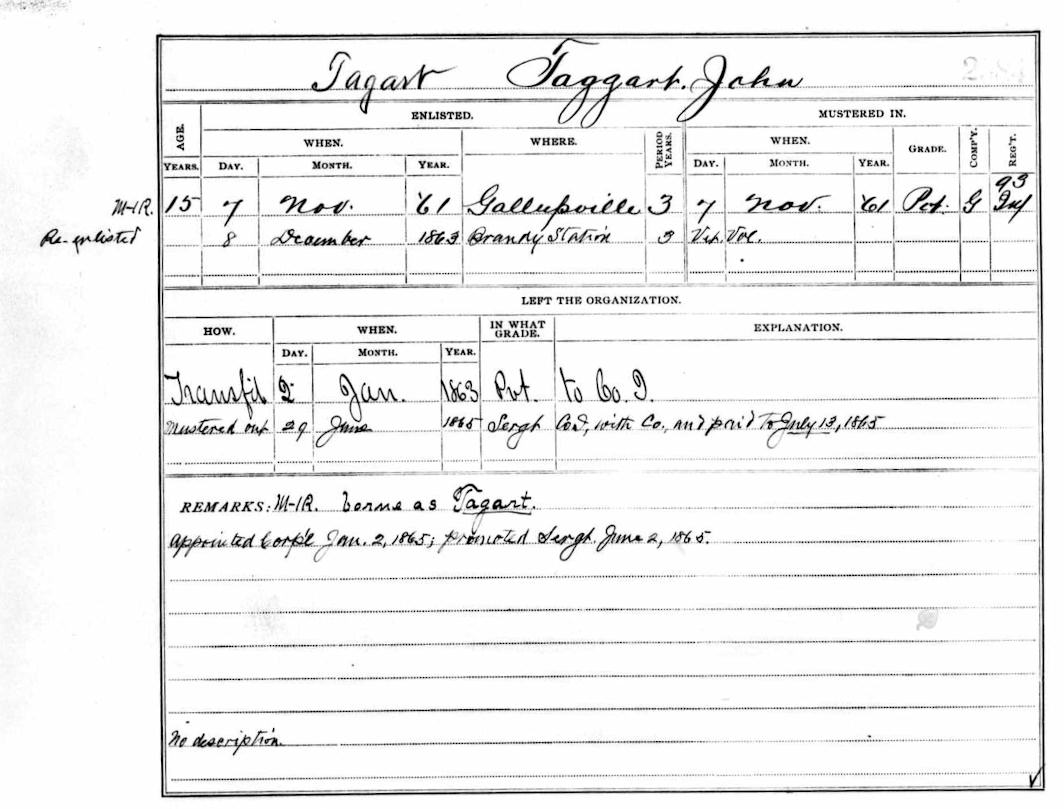 Tagart Taggart. John
ENLISTED. MUSTERED IN.
AGE. WHEN. WHERE. PERIOD YEARS. WHEN. GRADE. COMP'Y. REG'T.
YEARS. DAY. MONTH. YEAR. DAY. MONTH. YEAR.
93
M-I R. 15 7 Nov. '61 Gallupville 3 7 Nov. '61 Pvt. G Inf
Re-enlisted 8 December 1863 Brandy Station 3 Vet. Vol.
LEFT THE ORGANIZATION.
HOW. WHEN. IN WHAT GRADE. EXPLANATION.
DAY. MONTH. YEAR.
Transf'd 2 Jan. 1863 Pvt. to Co. I.
Mustered out 29 June 1865 Sergt Co I, with Co., and paid to July 13, 1865
REMARKS: M-I R. borne as Tagart.
Appointed Corpl Jan. 2, 1865; promoted Sergt. June 2, 1865.
No description.